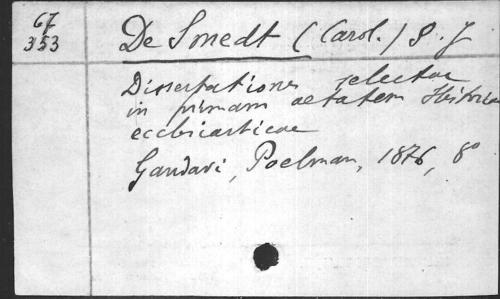 67
353
De Smedt (Carol.) S. J
Dissertationes selectae
in primam aetatem Historiae
ecclesiasticae
Gandavi, Poelman, 1876, 8°